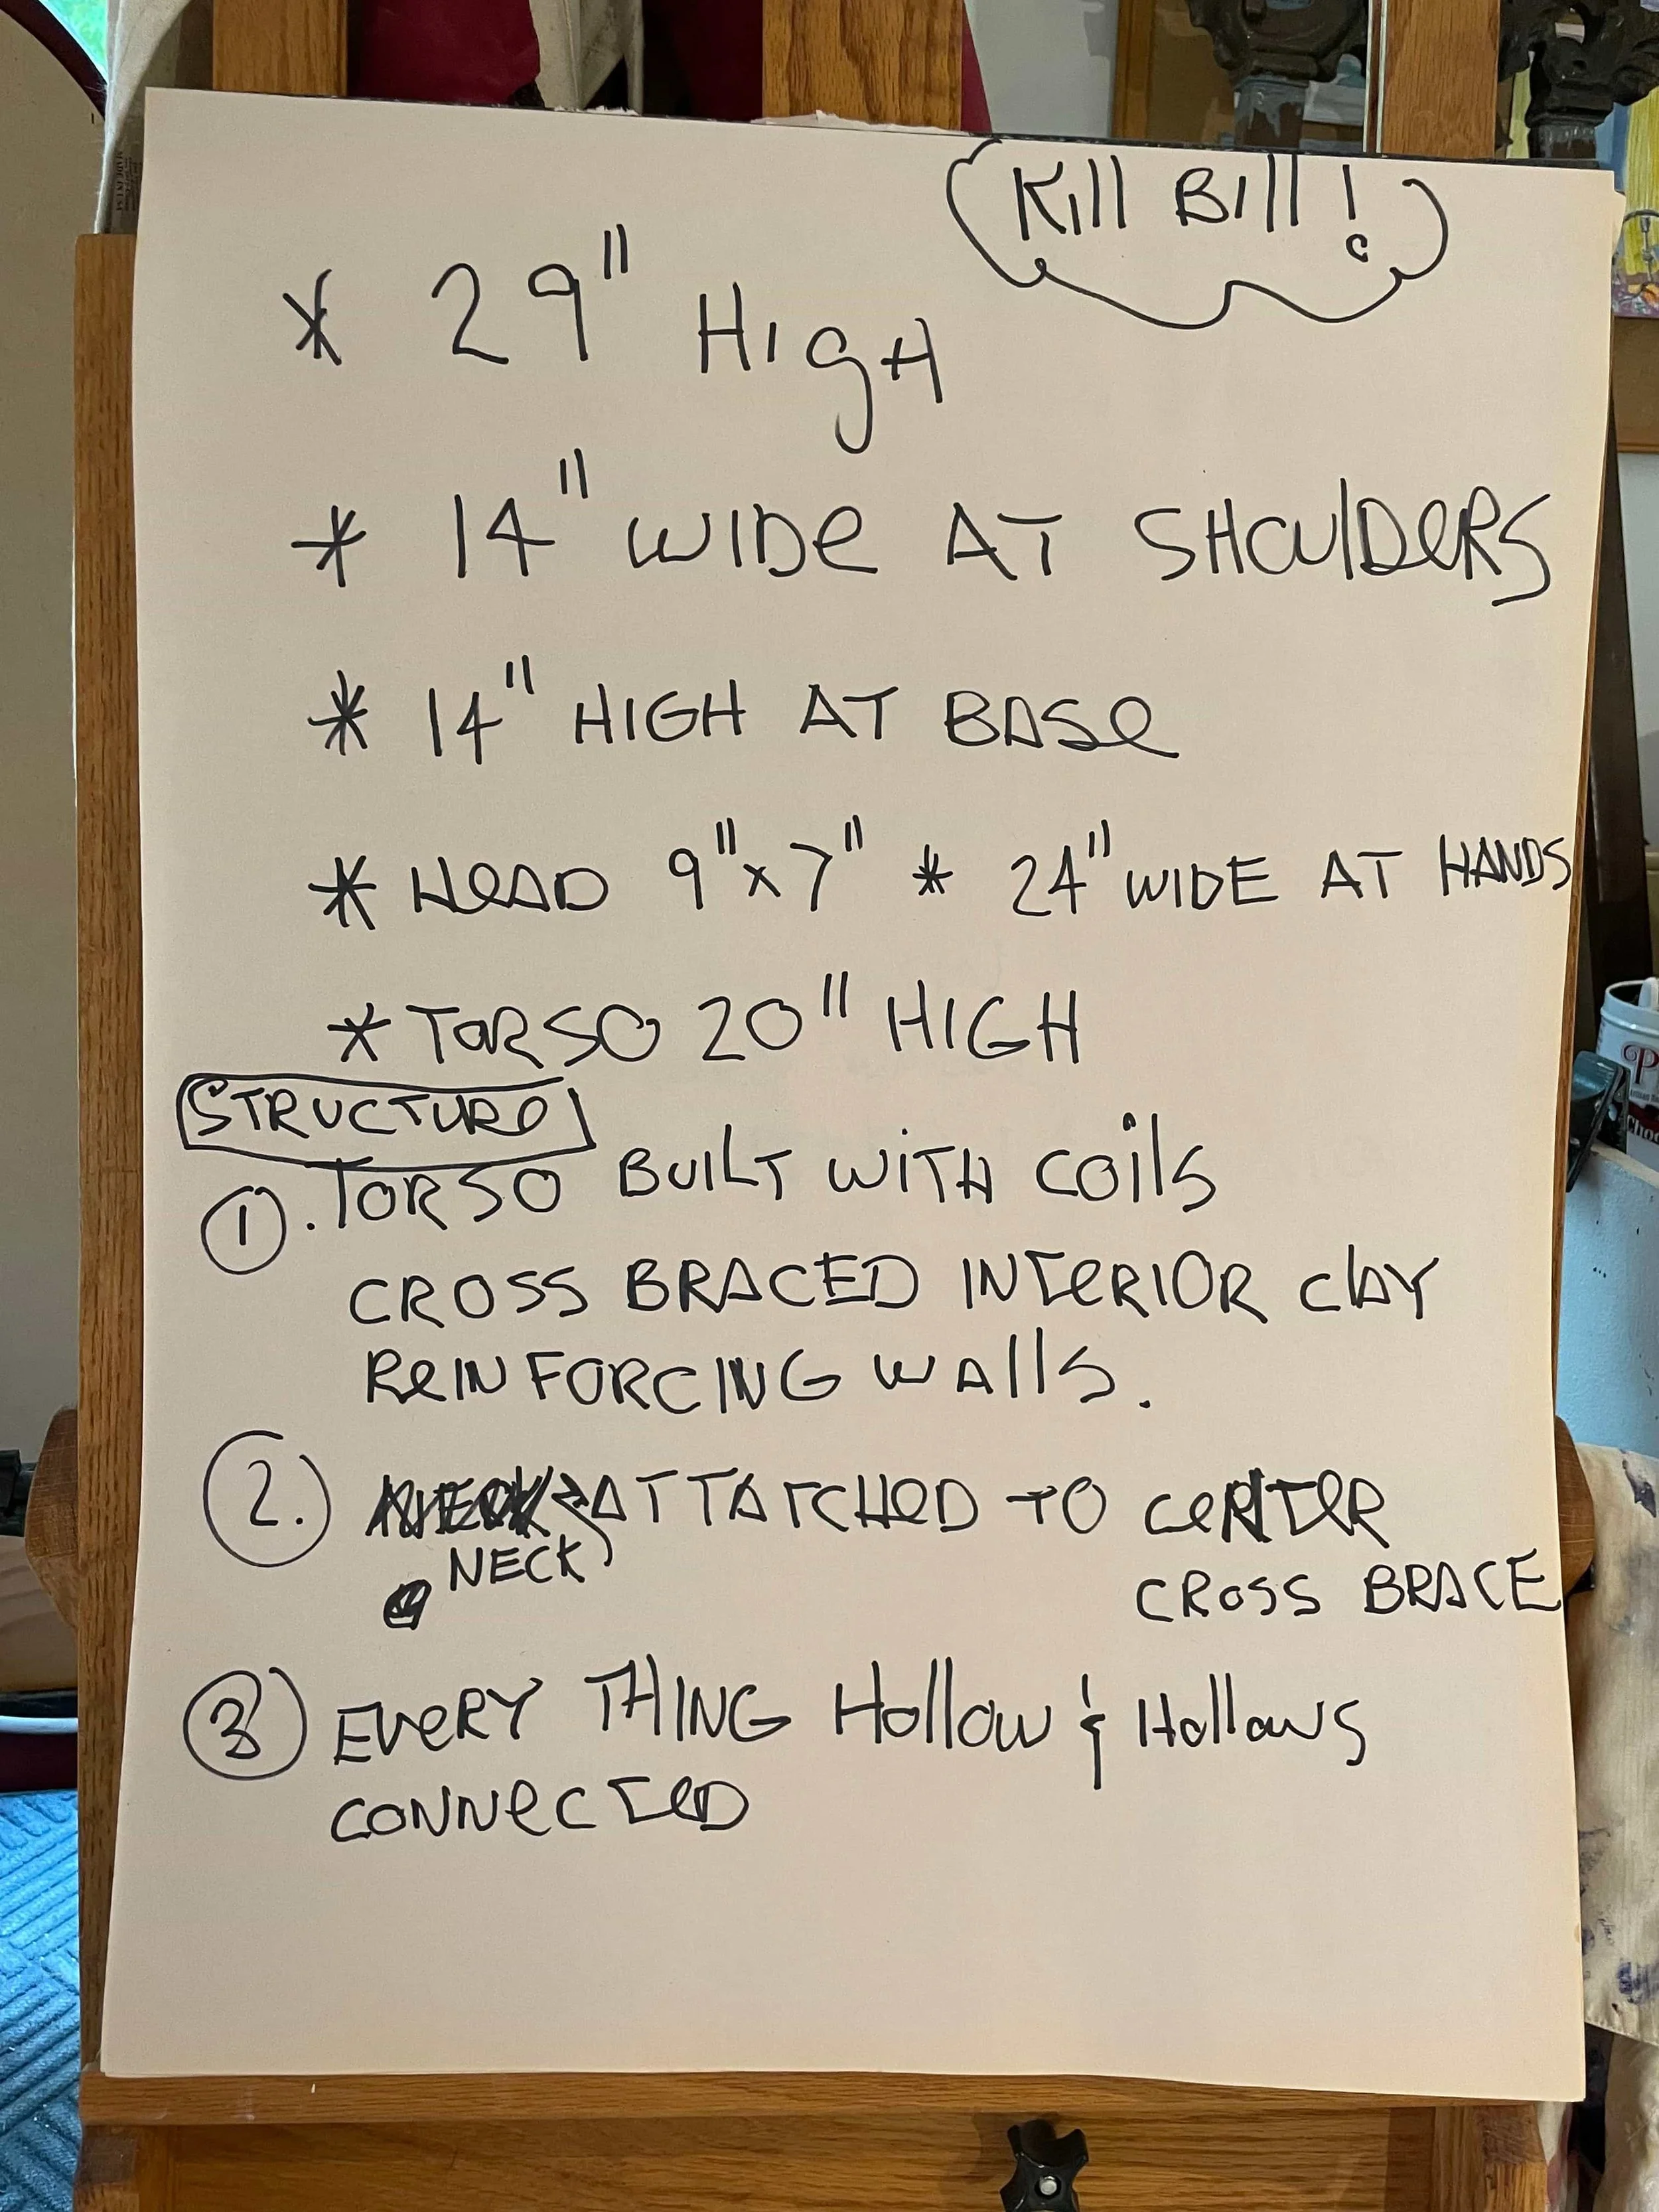 Kill Bill!
* 29" High
* 14" WIDe AT SHOulDeRS
* 14" HIGH AT BASe
* HeAD 9"x7" * 24" WIDE AT HANDS
* TORSO 20" HIGH
STRUCTURe
1. TORSO BuilT WiTH Coils
CROSS BRACED INTeRIOR ClAY
ReINFORCING WAlls.
2. ATTATCHeD TO CeNTeR
NECK
CROSS BRACE
3 EVeRY THING Hollow & Hollows
CONNeCTeD